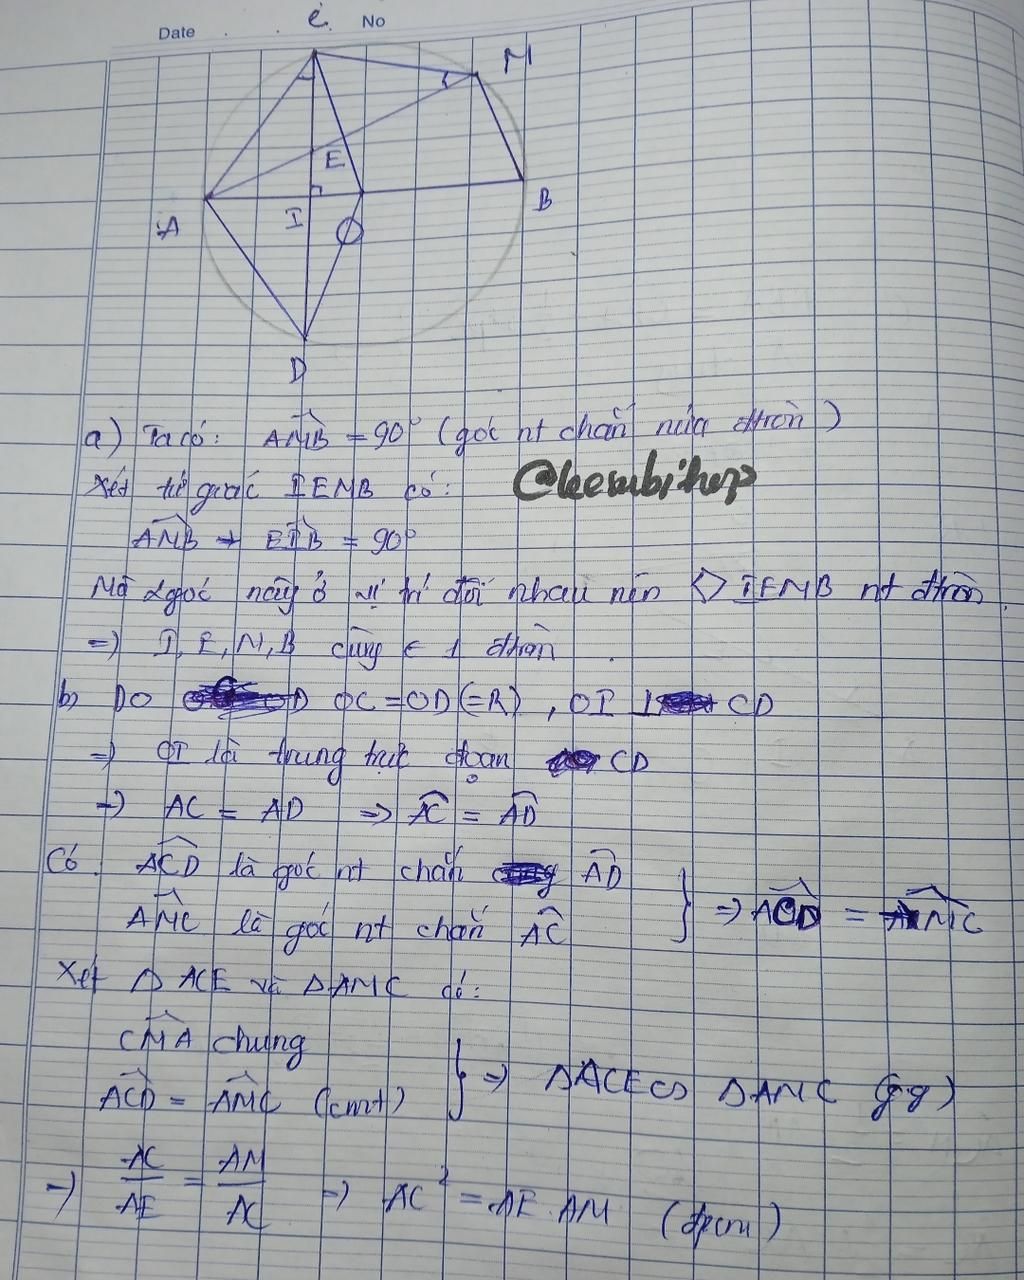 Date No
C
M
E
A
I
O
B
D
a) Ta có: AMB = 90° (góc nt chắn nửa đtròn)
Xét tứ giác IEMB có:
@keesubihop
AMB + EIB = 90°
Mà 2 góc này ở vị trí đối nhau nên ◇ IEMB nt đtròn
=) I, E, M, B cùng ∈ 1 đtròn
b) DO OC = OD (=R), OI ⊥ CD
=) OI là trung trực đoạn CD
=) AC = AD => AC = AD
Có ACD là góc nt chắn AD
AMC là góc nt chắn AC } => ACD = AMC
Xét Δ ACE và Δ AMC có:
CMA chung
ACD = AMC (cmt) } => ΔACE ∽ ΔAMC (g.g)
=) AC/AE = AM/AC => AC² = AE . AM (đpcm)